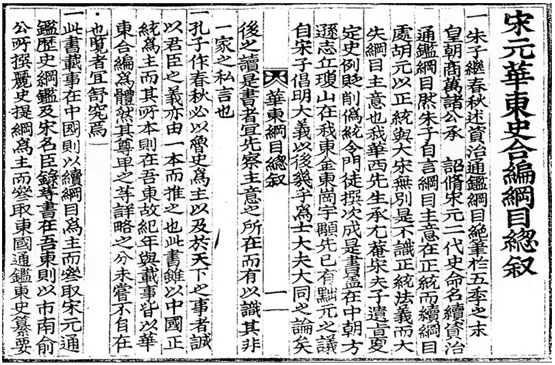 宋元華東史合編綱目總叙
一朱子繼春秋述資治通鑑綱目絕筆於五季之末
皇朝商萬諸公承 詔脩宋元二代史命名續資治
通鑑綱目然朱子自言綱目主意在正統而續綱目
處胡元以正統與大宋無別是不識正統法義而大
失綱目主意也我華西先生承尤菴宋夫子遺旨更
定史例貶削僞統令門徒撰次成是書盖在中朝方
遜志丘瓊山在我東金東岡宇顒先已有黜元之議
自宋子倡明大義以後幾乎爲士大夫大同之論矣
華東綱目總叙 一
後之讀是書者宜先察主意之所在而有以識其非
一家之私言也
一孔子作春秋必以魯史爲主以及於天下之事者誠
以君臣之義亦由一本而推之也此書雖以中國正
統爲主而其所本則在吾東故紀年與載事皆以華
東合編爲體然其尊卑之等詳略之分未嘗不自在
也覽者宜舒究焉
一此書載事在中國則以續綱目爲主而叅取宋元通
鑑歷史綱鑑及宋名臣錄等書在吾東則以市南俞
公所撰麗史提綱爲主而叅取東國通鑑東史纂要